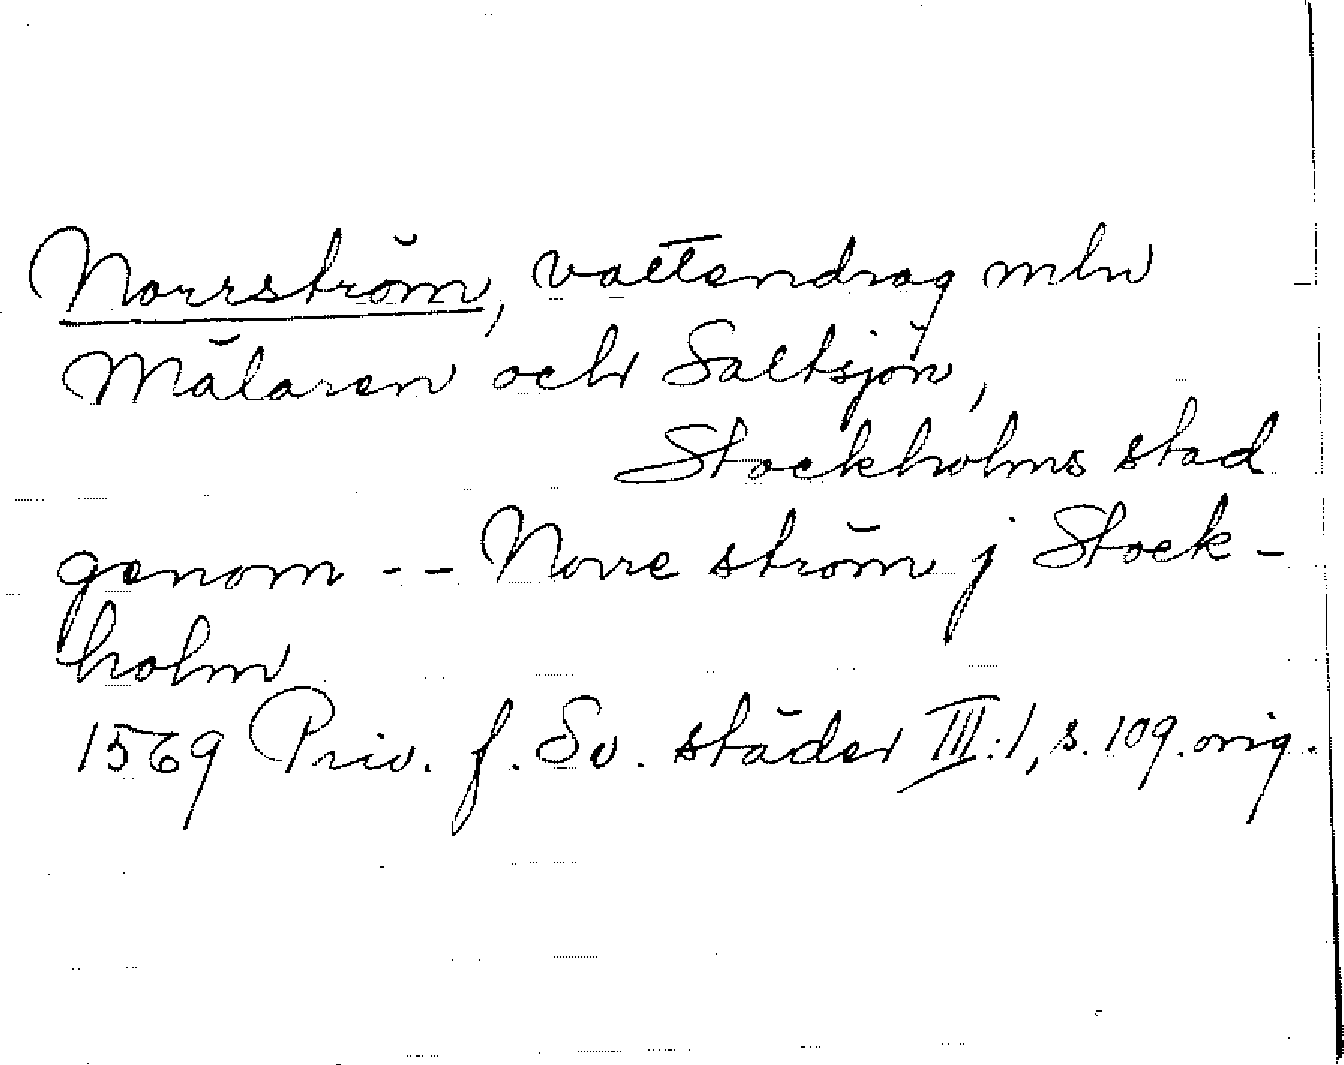 Norrström, vattendrag mln
Mälaren och Saltsjön,
Stockholms stad
genom -- Norre ström j Stock-
holm
1569 Priv. f. Sv. städer III:1, s. 109. orig.